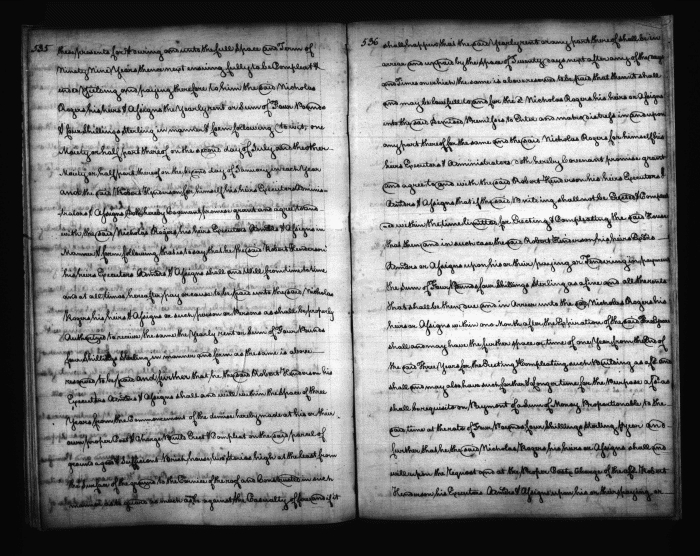 535
these presents for & during and unto the full Space and Term of
Ninety Nine Years thence next ensuing fully to be Compleat &
and Yielding and paying therefore to him the said Nicholas
Rogers his heirs & Assigns the Yearly rent or Sum of Four Pounds
& four Shillings Sterling in manner & form following to wit, one
Moiety or half part thereof on the second day of July and the other
Moiety or half part thereof on the second day of January in each Year
And the said Robert Henderson for himself his heirs Executors Adminis
trators & Assigns doth hereby Covenant promise grant and agree to and
with the said Nicholas Rogers his heirs Executors Admrs & Assigns in
Manner & form following that is to say that he the said Robert Henderson
his heirs Executors Admrs & Assigns shall and will from time to time
and at all times hereafter pay or cause to be paid unto the said Nicholas
Rogers his heirs & Assigns or such person or Persons as shall be properly
Authorized to receive the same the Yearly rent or Sum of Four Pounds
four Shillings Sterling in manner and form as the same is above
reserved to be paid And further that he the said Robert Henderson his
Executors Admrs & Assigns shall and will within the Space of three
Years from the Commencement of the demise hereby made at his or their
own proper Cost & Charge Build Erect & Compleat on the said parcel of
ground a good & Sufficient Brick house two Stories high at the least from
the Surface of the ground to the Cornice of the roof and Construct in such
manner as to guard as much as against the Casualty of fire and if it
536
shall happen that the said Yearly rent or any part thereof shall be in
arrear and unpaid by the Space of Twenty days next after any of the days
and Times on which the same is above reserved to be paid that then it shall
and may be lawful to and for the sd Nicholas Rogers his heirs or Assigns
into the said demised Premises to Enter and make distress in and upon
any part thereof for the same and the said Nicholas Rogers for himself his
heirs Executors & Administrators doth hereby Covenant promise grant
and agree to and with the said Robert Henderson his heirs Executors
Admrs & Assigns that if the said Building shall not be Erected & Compleat
ed within the time limitted for Erecting & Compleatting the said House
that then and in such case the said Robert Henderson his heirs Exrs
Admrs or Assigns upon his or their paying or Tendering in payment
the Sum of Four Pounds four Shillings Sterling as a fine and all the rents
that shall be then due and in Arrear unto the said Nicholas Rogers his
heirs or Assigns within one Month after the Expiration of the said three Years
shall and may have the further space or time of one Year from the End of
the said Three Years for the Erecting & Compleating such Building as afd and
shall and may also have such further & longer time for the Purpose afd as
shall be requisite on Payment of a Sum of Money Proportionable to the
said time at the rate of Four Pounds four Shillings Sterling by year And
further that he the said Nicholas Rogers his heirs or Assigns shall and
will upon the Request and at the Proper Costs & Charge of the afd Robert
Henderson his Executors Admrs & Assigns upon his or their paying or